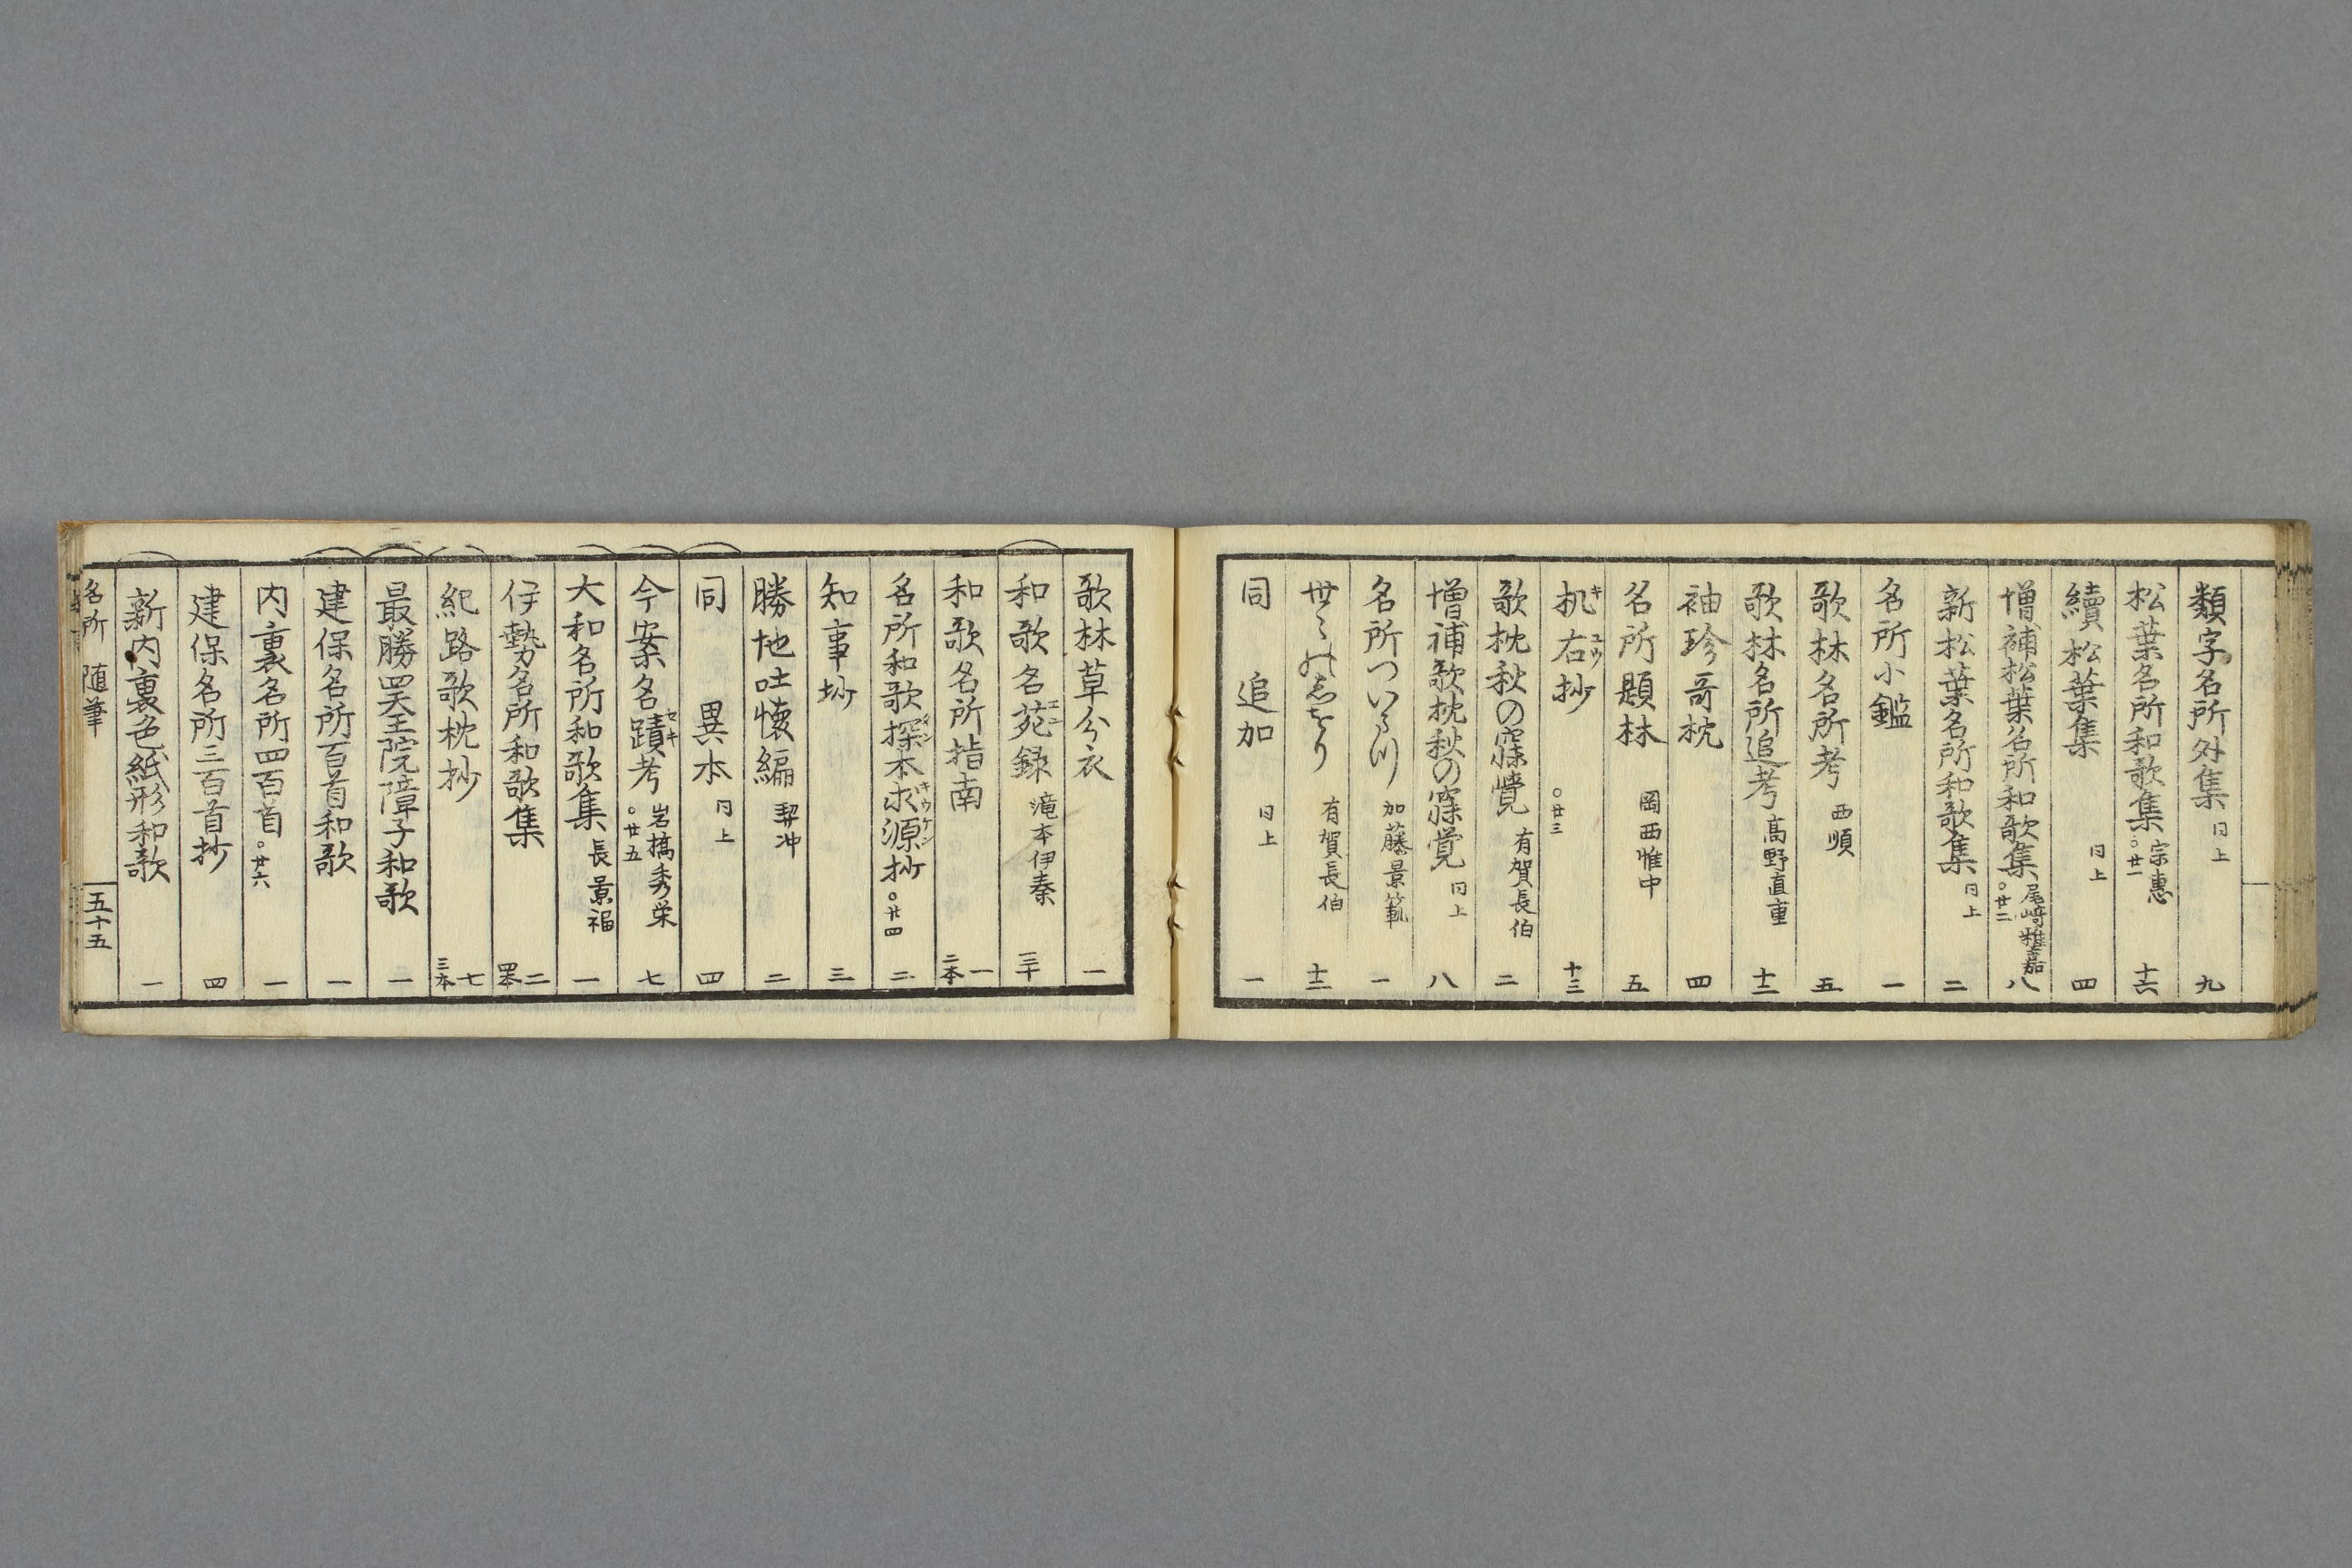 類字名所外集 同上 九
松葉名所和歌集 宗惠 ○廿一 十六
續松葉集 同上 四
増補松葉名所和歌集 尾崎雅嘉 ○廿二 八
新松葉名所和歌集 同上 二
名所小鑑 一
歌林名所考 西順 五
歌林名所追考 髙野直重 十二
袖珍哥枕 四
名所題林 岡西惟中 五
机右抄 キユウ ○廿三 十三
歌枕秋の寐覺 有賀長伯 二
増補歌枕秋の寐覚 同上 八
名所つい 加藤景範 一
世々のしをり 有賀長伯 十二
同 追加 同上 一
歌林草分衣 一
和歌名苑録 エン 滝本伊秦 三十
和歌名所指南 一 二本
名所和歌探本求源抄 タン キウケン ○廿四 二
知事抄 三
勝地吐懐編 契沖 二
同 異本 同上 四
今案名蹟考 セキ 岩橋秀栄 ○廿五 七
大和名所和歌集 長景福 一
伊勢名所和歌集 二 四本
紀路歌枕抄 七 三本
最勝四天王院障子和歌 一
建保名所百首和歌 一
内裏名所四百首 ○廿六 一
建保名所三百首抄 四
新内裏色紙形和歌 一
名所 随筆 五十五